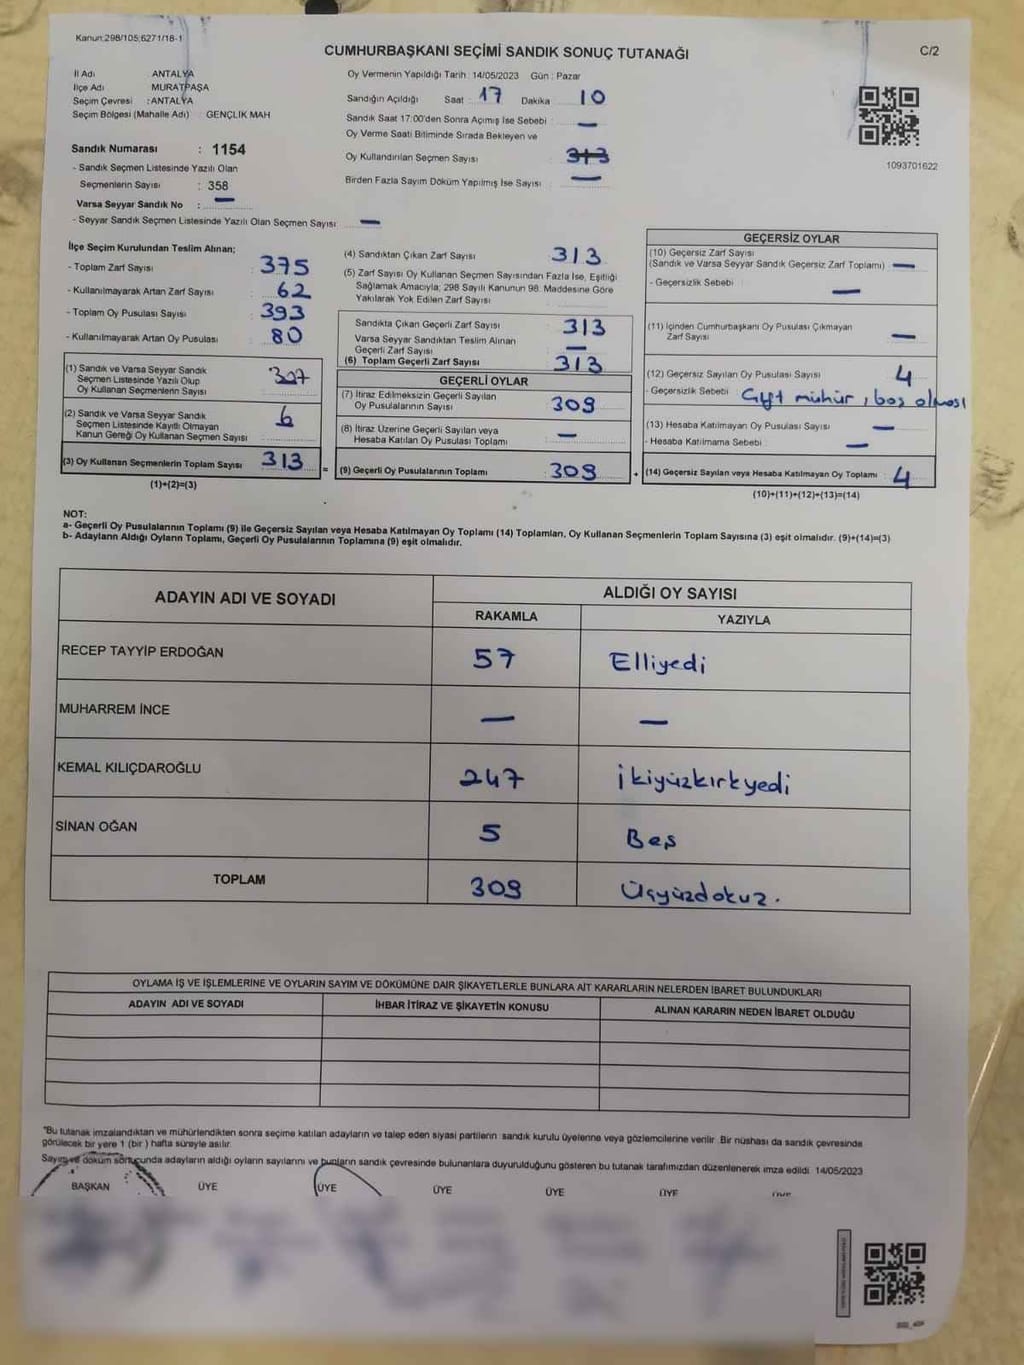 Kanun:298/105;6271/18-1
CUMHURBAŞKANI SEÇİMİ SANDIK SONUÇ TUTANAĞI
C/2
İl Adı ANTALYA
İlçe Adı MURATPAŞA
Seçim Çevresi : ANTALYA
Seçim Bölgesi (Mahalle Adı) GENÇLİK MAH
Sandık Numarası : 1154
- Sandık Seçmen Listesinde Yazılı Olan
Seçmenlerin Sayısı : 358
Varsa Seyyar Sandık No : —
- Seyyar Sandık Seçmen Listesinde Yazılı Olan Seçmen Sayısı —
Oy Vermenin Yapıldığı Tarih : 14/05/2023 Gün : Pazar
Sandığın Açıldığı Saat : 17 Dakika 10
Sandık Saat 17:00'den Sonra Açımış İse Sebebi : —
Oy Verme Saati Bitiminde Sırada Bekleyen ve
Oy Kullandırılan Seçmen Sayısı 313
Birden Fazla Sayım Döküm Yapılmış İse Sayısı : —
1093701622
İlçe Seçim Kurulundan Teslim Alınan;
- Toplam Zarf Sayısı : 375
- Kullanılmayarak Artan Zarf Sayısı : 62
- Toplam Oy Pusulası Sayısı : 393
- Kullanılmayarak Artan Oy Pusulası : 80
(1) Sandık ve Varsa Seyyar Sandık
Seçmen Listesinde Yazılı Olup
Oy Kullanan Seçmenlerin Sayısı : 307
(2) Sandık ve Varsa Seyyar Sandık
Seçmen Listesinde Kayıtlı Olmayan
Kanun Gereği Oy Kullanan Seçmen Sayısı 6
(3) Oy Kullanan Seçmenlerin Toplam Sayısı 313
(1)+(2)=(3)
(4) Sandıktan Çıkan Zarf Sayısı : 313
(5) Zarf Sayısı Oy Kullanan Seçmen Sayısından Fazla İse, Eşitliği
Sağlamak Amacıyla; 298 Sayılı Kanunun 98. Maddesine Göre
Yakılarak Yok Edilen Zarf Sayısı :
Sandıkta Çıkan Geçerli Zarf Sayısı : 313
Varsa Seyyar Sandıktan Teslim Alınan
Geçerli Zarf Sayısı : —
(6) Toplam Geçerli Zarf Sayısı : 313
GEÇERLİ OYLAR
(7) İtiraz Edilmeksizin Geçerli Sayılan
Oy Pusulalarının Sayısı : 309
(8) İtiraz Üzerine Geçerli Sayılan veya
Hesaba Katılan Oy Pusulası Toplamı : —
= (9) Geçerli Oy Pusulalarının Toplamı : 309
GEÇERSİZ OYLAR
(10) Geçersiz Zarf Sayısı
(Sandık ve Varsa Seyyar Sandık Geçersiz Zarf Toplamı) : —
- Geçersizlik Sebebi : —
(11) İçinden Cumhurbaşkanı Oy Pusulası Çıkmayan
Zarf Sayısı : —
(12) Geçersiz Sayılan Oy Pusulası Sayısı : 4
- Geçersizlik Sebebi : Çift mühür, boş olması
(13) Hesaba Katılmayan Oy Pusulası Sayısı : —
- Hesaba Katılmama Sebebi : —
+ (14) Geçersiz Sayılan veya Hesaba Katılmayan Oy Toplamı : 4
(10)+(11)+(12)+(13)=(14)
NOT:
a- Geçerli Oy Pusulalarının Toplamı (9) ile Geçersiz Sayılan veya Hesaba Katılmayan Oy Toplamı (14) Toplamları, Oy Kullanan Seçmenlerin Toplam Sayısına (3) eşit olmalıdır. (9)+(14)=(3)
b- Adayların Aldığı Oyların Toplamı, Geçerli Oy Pusulalarının Toplamına (9) eşit olmalıdır.
ADAYIN ADI VE SOYADI
ALDIĞI OY SAYISI
RAKAMLA YAZIYLA
RECEP TAYYİP ERDOĞAN 57 Elliyedi
MUHARREM İNCE — —
KEMAL KILIÇDAROĞLU 247 ikiyüzkırkyedi
SİNAN OĞAN 5 Beş
TOPLAM 309 Üçyüzdokuz.
OYLAMA İŞ VE İŞLEMLERİNE VE OYLARIN SAYIM VE DÖKÜMÜNE DAİR ŞİKAYETLERLE BUNLARA AİT KARARLARIN NELERDEN İBARET BULUNDUKLARI
ADAYIN ADI VE SOYADI İHBAR İTİRAZ VE ŞİKAYETİN KONUSU ALINAN KARARIN NEDEN İBARET OLDUĞU
*Bu tutanak imzalandıktan ve mühürlendikten sonra seçime katılan adayların ve talep eden siyasi partilerin sandık kurulu üyelerine veya gözlemcilerine verilir. Bir nüshası da sandık çevresinde
görülecek bir yere 1 (bir) hafta süreyle asılır.
Sayım ve döküm sonucunda adayların aldığı oyların sayılarını ve bunların sandık çevresinde bulunanlara duyurulduğunu gösteren bu tutanak tarafımızdan düzenlenerek imza edildi. 14/05/2023
BAŞKAN ÜYE ÜYE ÜYE ÜYE ÜYE ÜYE